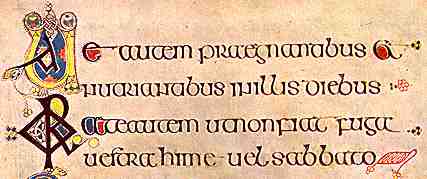 Uae autem praegnantibus et
nutriantibus in illis diebus
Orate autem ut non fiat fuga
uestra hime uel sabbato